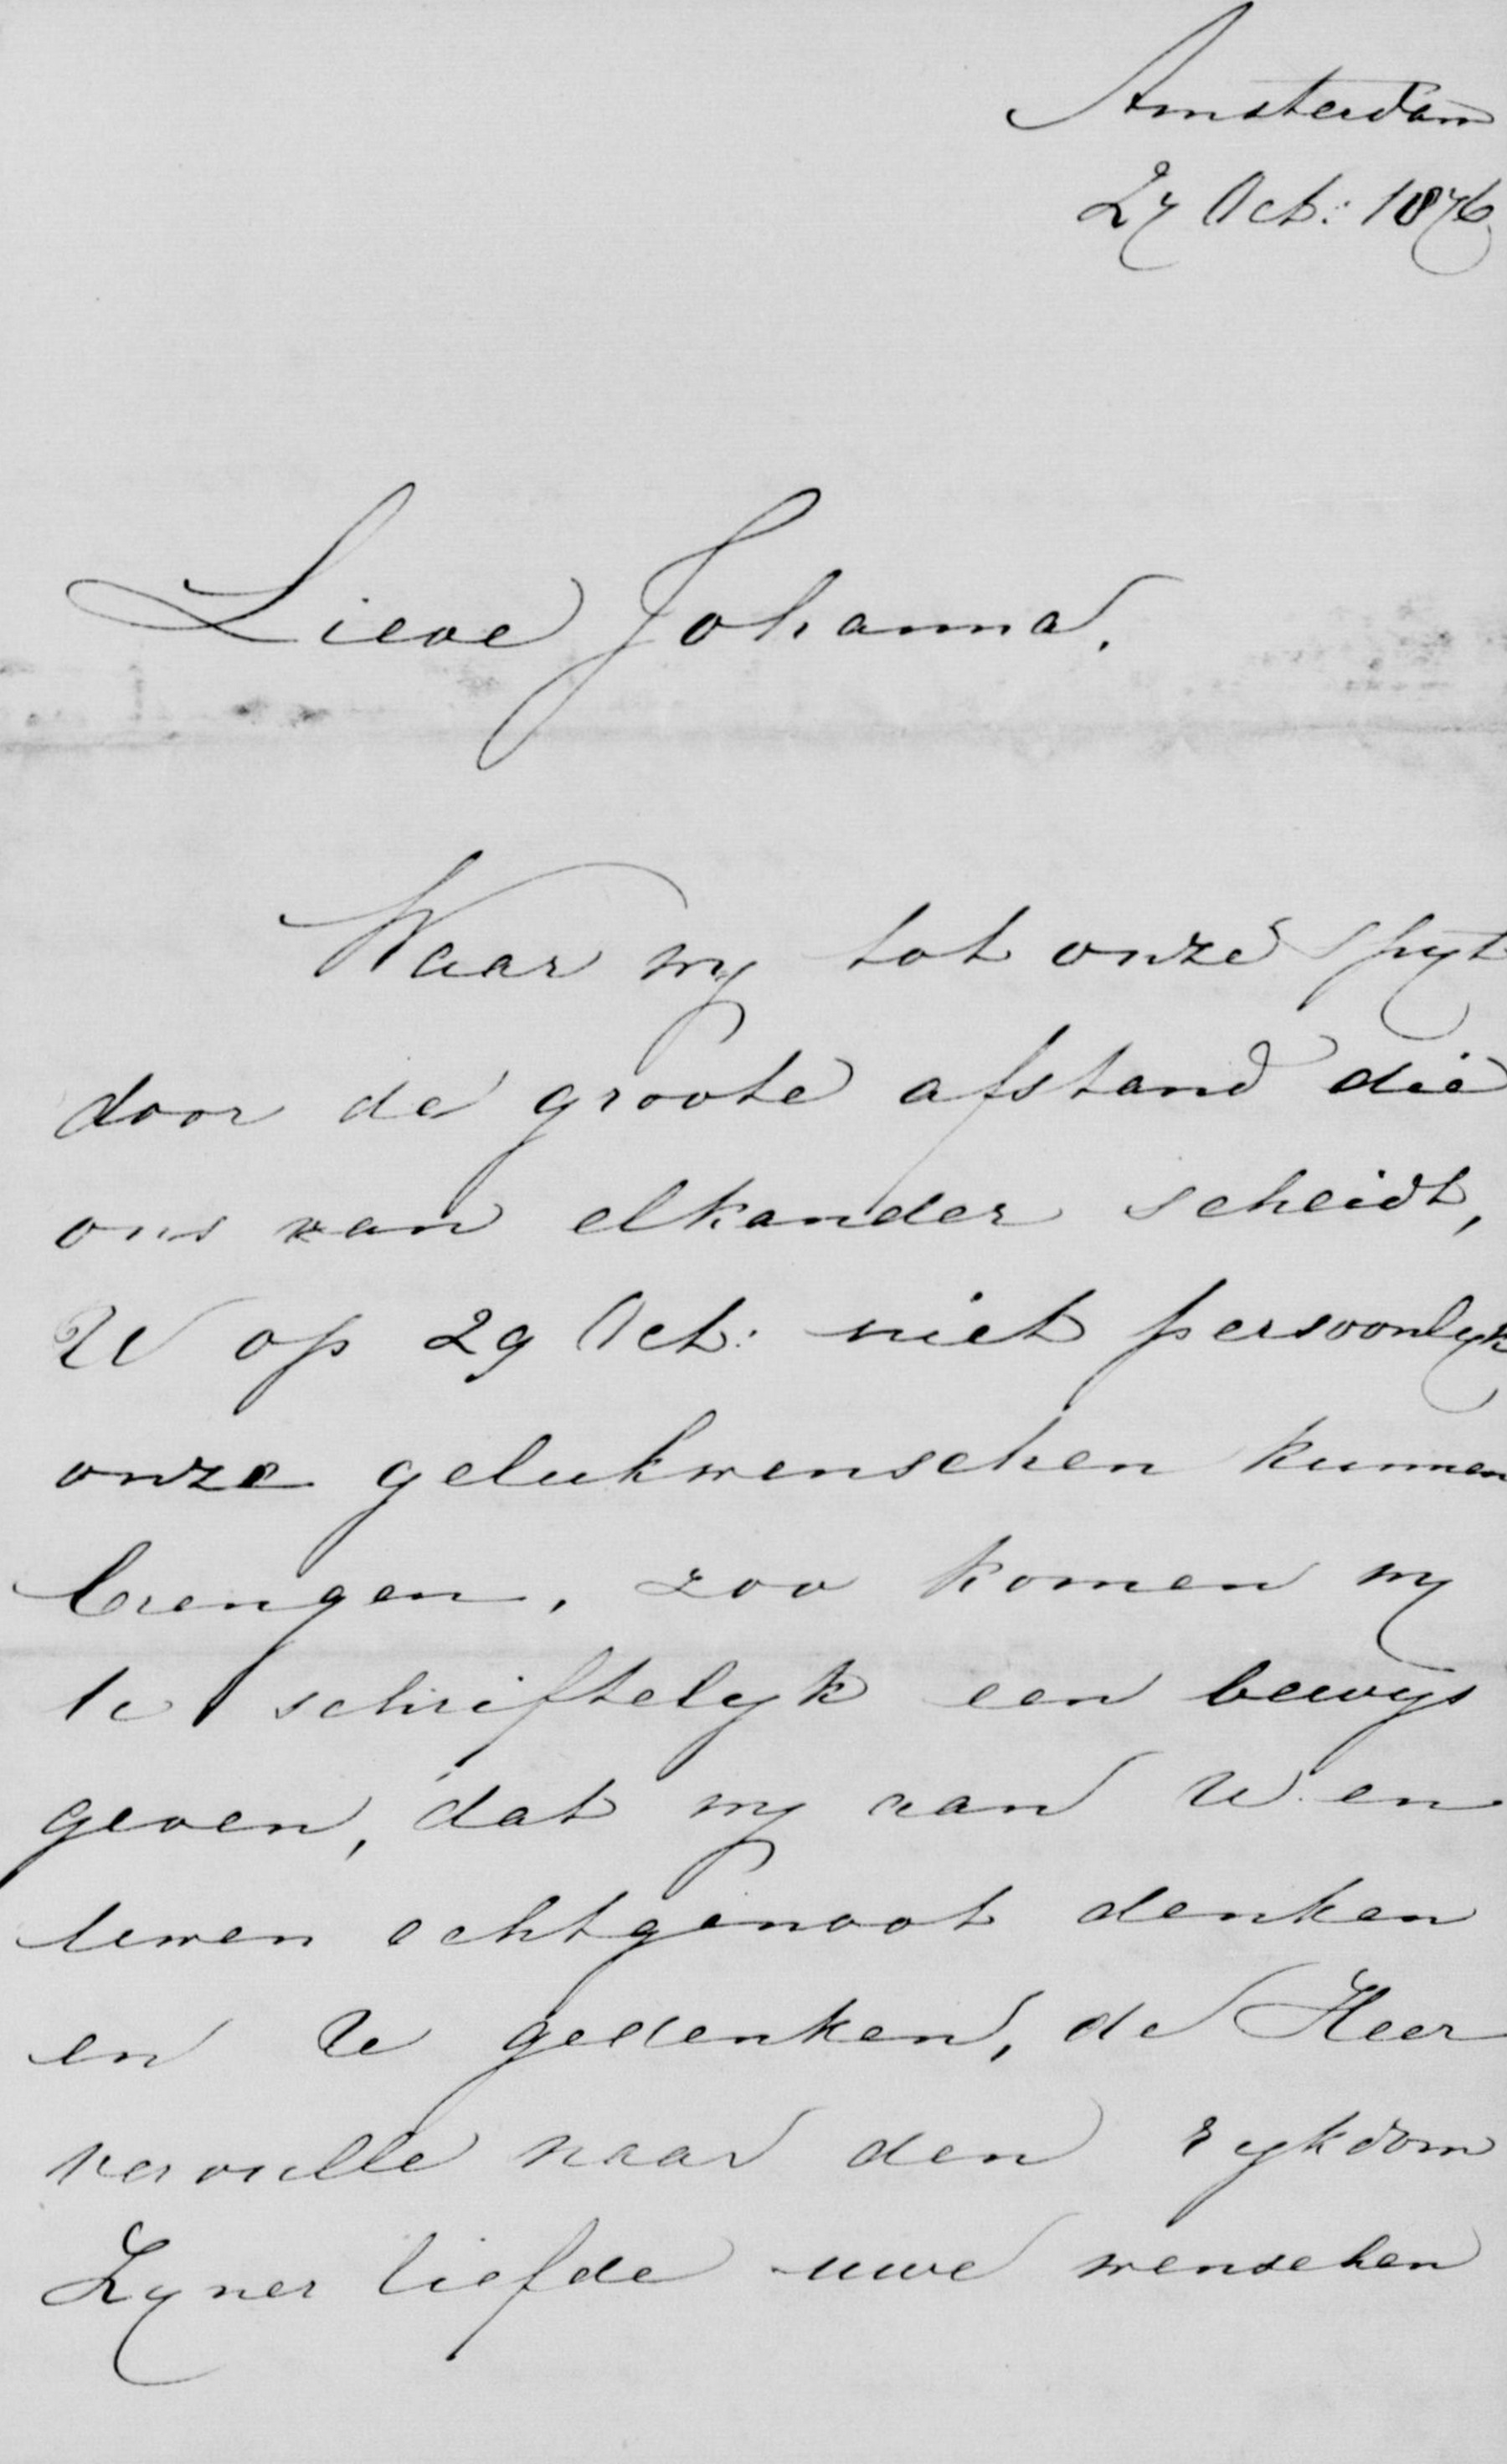 Amsterdam
27 Oct: 1876
Lieve Johanna.
Waar wy tot onze spyt
door de groote afstand die
ons van elkander scheidt,
U op 29 Oct: niet persoonlyk
onze gelukwenschen kunnen
brengen, zoo komen wy
U schriftelyk een bewys
geven, dat wy aan U en
uwen echtgenoot denken
en U gedenken, de Heer
vervulle naar den rykdom
Zyner liefde uwe wenschen